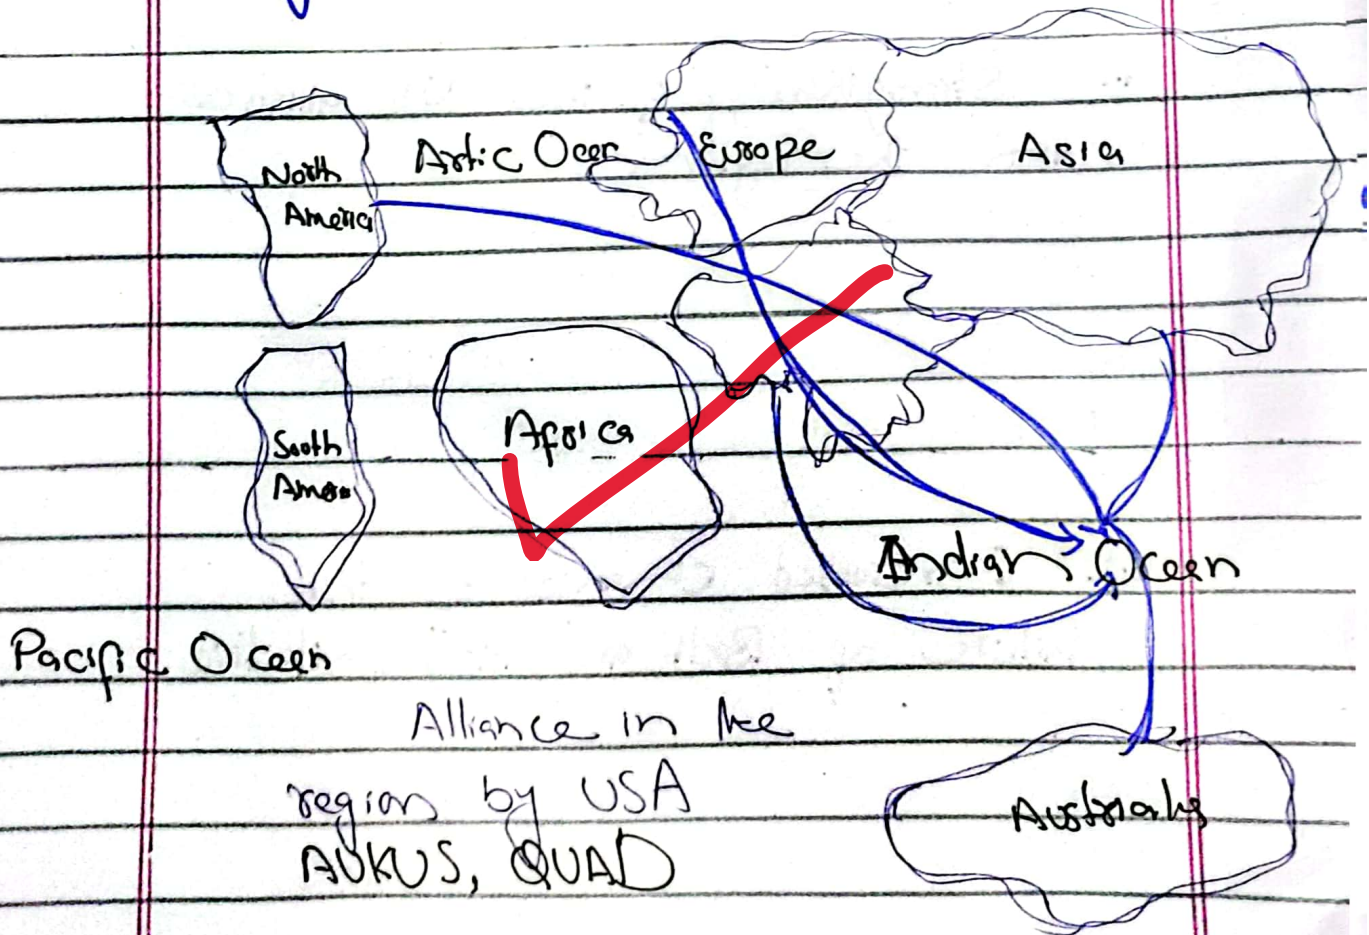 North
America
Artic Ocen
Europe
Asia
South
Amer
Africa
Indian Oceen
Pacific Oceen
Alliance in the
region by USA
AUKUS, QUAD
Australia